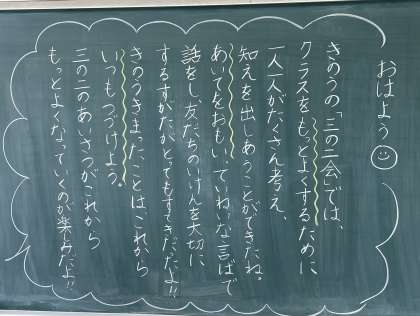 おはよう
きのうの「三の二会」では、
クラスをもっとよくするために
一人一人がたくさん考え、
知えを出しあうことができたね。
あいてをおもい、ていねいな言ばで
話をし、友だちのいけんを大切に
するすがたがとってもすてきだったよ!!
きのうきまったことはこれから
いつもつづけよう。
三の二のあいさつがこれから
もっとよくなっていくのが楽しみだよ!!